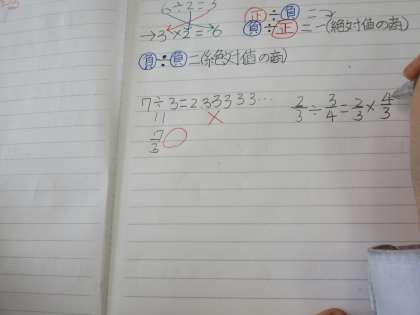 6÷2=3
→3×2=6
正÷負=
負÷正=−(絶対値の商)
負÷負=(絶対値の商)
7÷3=2.33333…
7/3
2/3÷3/4=2/3×4/3